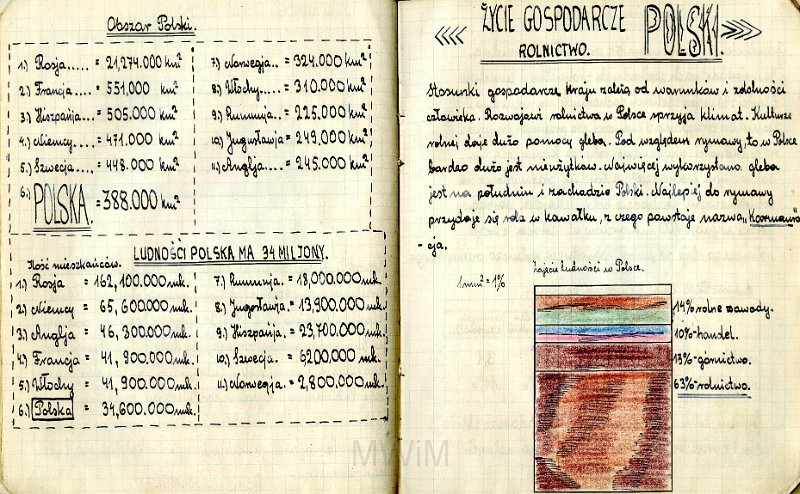 Obszar Polski.
1.) Rosja..... = 21,274.000 km²
2.) Francja.... = 551.000 km²
3.) Hiszpańja.. = 505.000 km²
4.) Niemcy.... = 471.000 km²
5.) Szwecja... = 448.000 km²
6.) POLSKA. = 388.000 km²
7.) Norwegja.. = 324.000 km²
8.) Włochy..... = 310.000 km²
9.) Rumunja.. = 225.000 km²
10.) Jugosławja = 249.000 km²
11.) Anglja.... = 245.000 km²
LUDNOŚCI POLSKA MA 34 MILJONY.
Ilość mieszkańców.
1.) Rosja = 162,100.000 mk.
2.) Niemcy = 65,600.000 mk.
3.) Anglja = 46,300.000 mk.
4.) Francja = 41,900.000 mk.
5.) Włochy = 41,900.000 mk.
6.) Polska = 34,600.000 mk.
7.) Rumunja. = 18,000.000 mk.
8.) Jugosławja. = 13,900.000 mk.
9.) Hiszpańja. = 23,700.000 mk.
10.) Szwecja. = 6,200.000 mk.
11.) Norwegja. = 2,800.000 mk.
ŻYCIE GOSPODARCZE POLSKI.
ROLNICTWO.
Stosunki gospodarcze kraju zależą od warunków i zdolności
człowieka. Rozwojowi rolnictwa w Polsce sprzyja klimat. Kulturze
rolnej daje dużo pomocy gleba. Pod względem uprawy, to w Polsce
bardzo dużo jest nieużytków. Najwięcej wykorzystana gleba
jest na południu i zachodzie Polski. Najlepiej do uprawy
przydaje się rola w kawałku, z czego powstaje nazwa „Komasa"
-cja.
Zajęcie ludności w Polsce.
1 mm² = 1%
14% rolne zawody.
10%-handel.
13%-górnictwo.
63%-rolnictwo.
MWiM